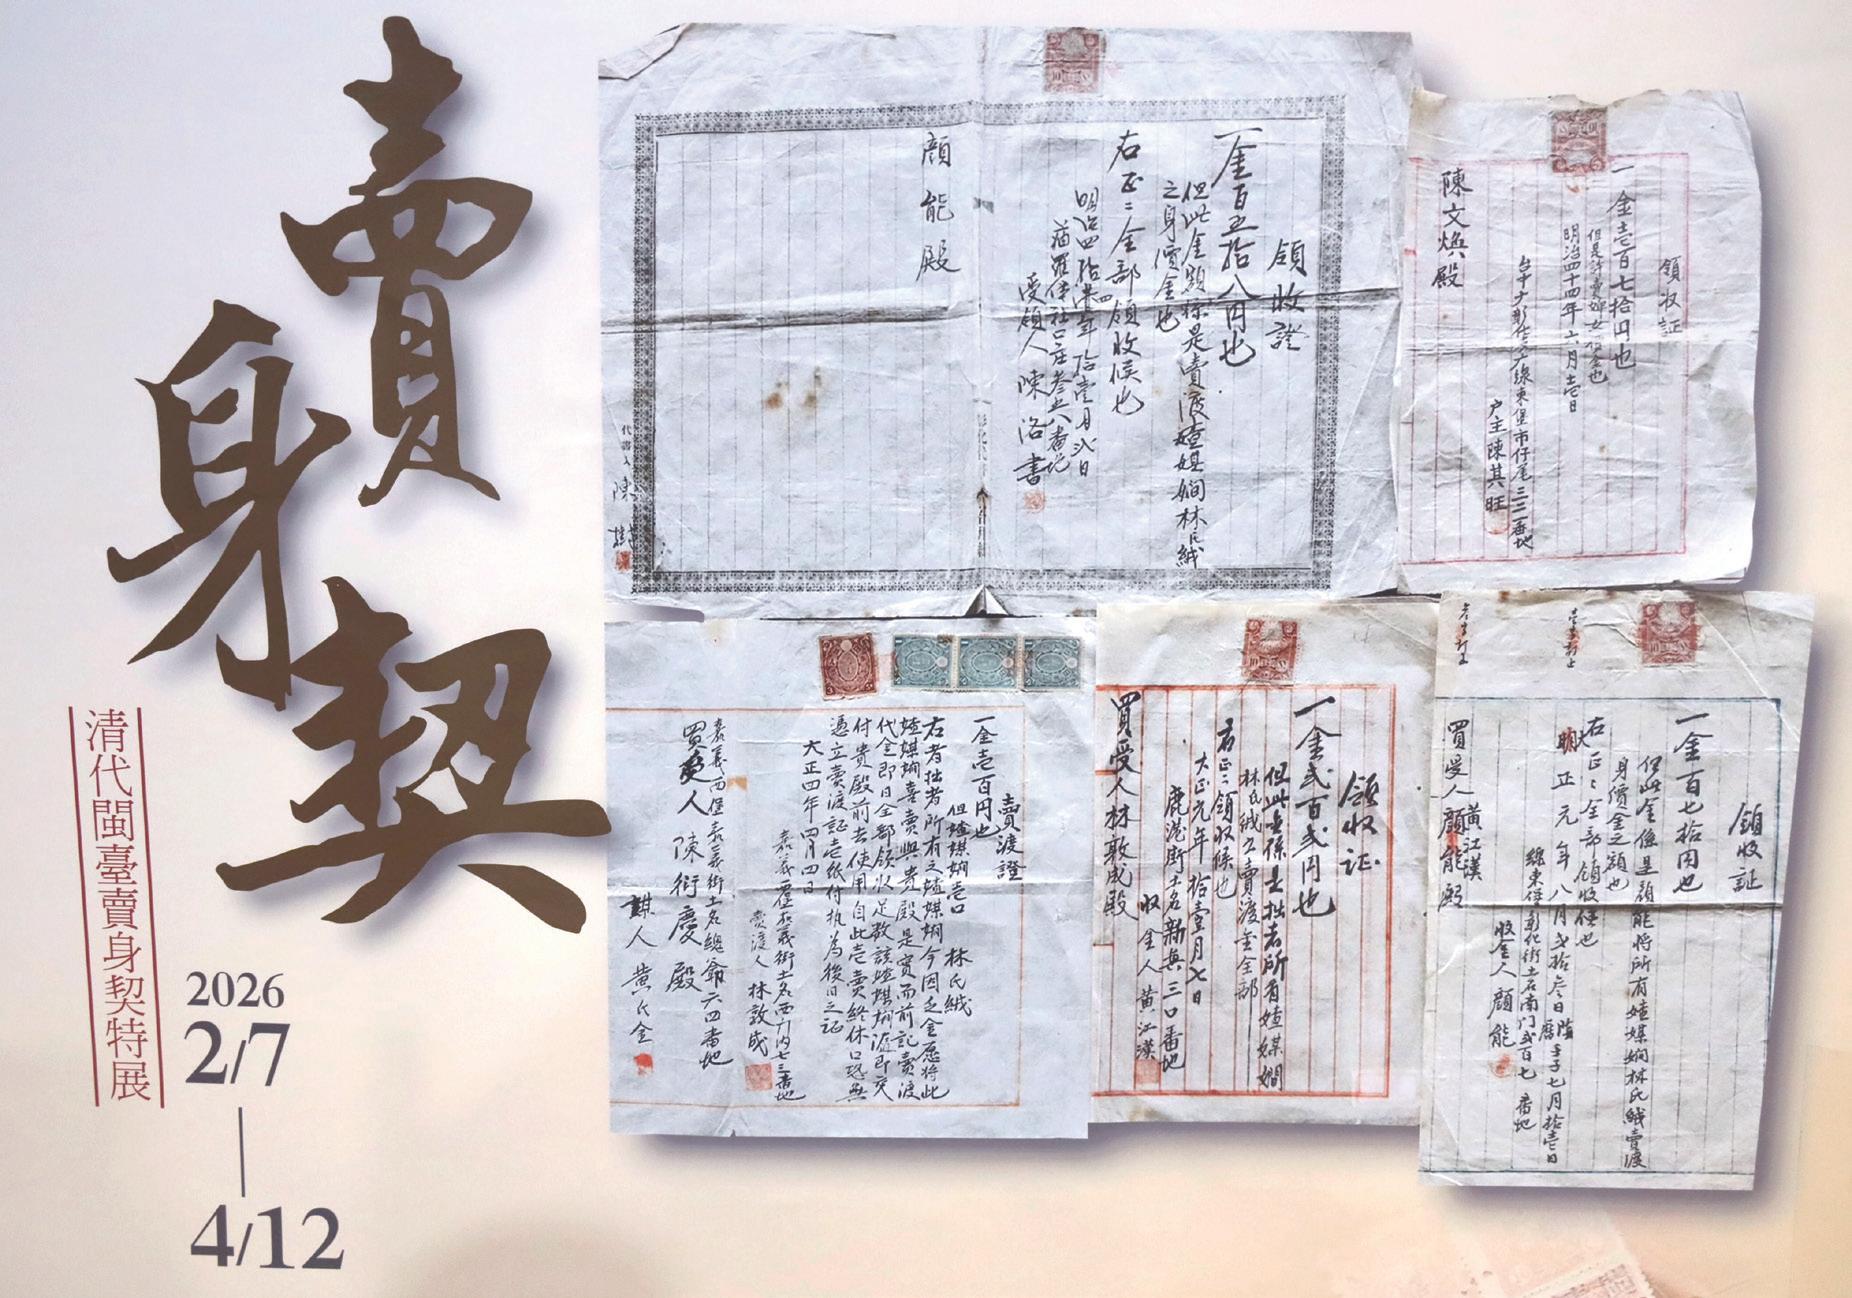 賣身契
清代閩臺賣身契特展
2026
2/7
4/12
領收證
一金百五拾八円也
但此金額係是賣渡媎媒嫺林氏絨
之身價金也
右正ニ全部領收候也
明治四拾四年拾壹月弍日
受領人陳洛書
顏能殿
代書人陳
領收証
一金壱百七拾円也
明治四十四年六月壱日
戶主陳其旺
陳文煥殿
賣渡證
一金壱百円也
但媎媒嫺壱口 林氏絨
右者拙者所有之媎媒嫺今因乏金愿将此
媎媒嫺喜賣與貴殿是實而前記賣渡
代金即日全部領收足数該媎媒嫺隨即交
付貴殿前去使用自此壱賣終休口恐無
憑立賣渡証壱紙付执為後日之証
大正四年四月四日
嘉義廳嘉義街土名西門內七三番地
賣渡人 林敦成
嘉義西堡嘉義街土名總爺六四番地
買受人 陳衍慶殿
媒人 黃氏全
領收証
一金弍百弍円也
但此金係是拙者所有媎媒嫺
林氏絨立賣渡金全部
右正ニ領收候也
大正元年拾壹月七日
鹿港街土名新興三口番地
收金人 黃江漢
買受人林敦成殿
領收証
一金百七拾円也
但此金係是顏能將所有媎媒嫺林氏絨賣渡
身價金之額也
右正ニ全部領收候也
大正元年八月弍拾叁日 陰曆壬子七月拾壱日
線東堡彰化街土名南門弍百七番地
收金人 顏能
買受人 黃江漢
顏能殿